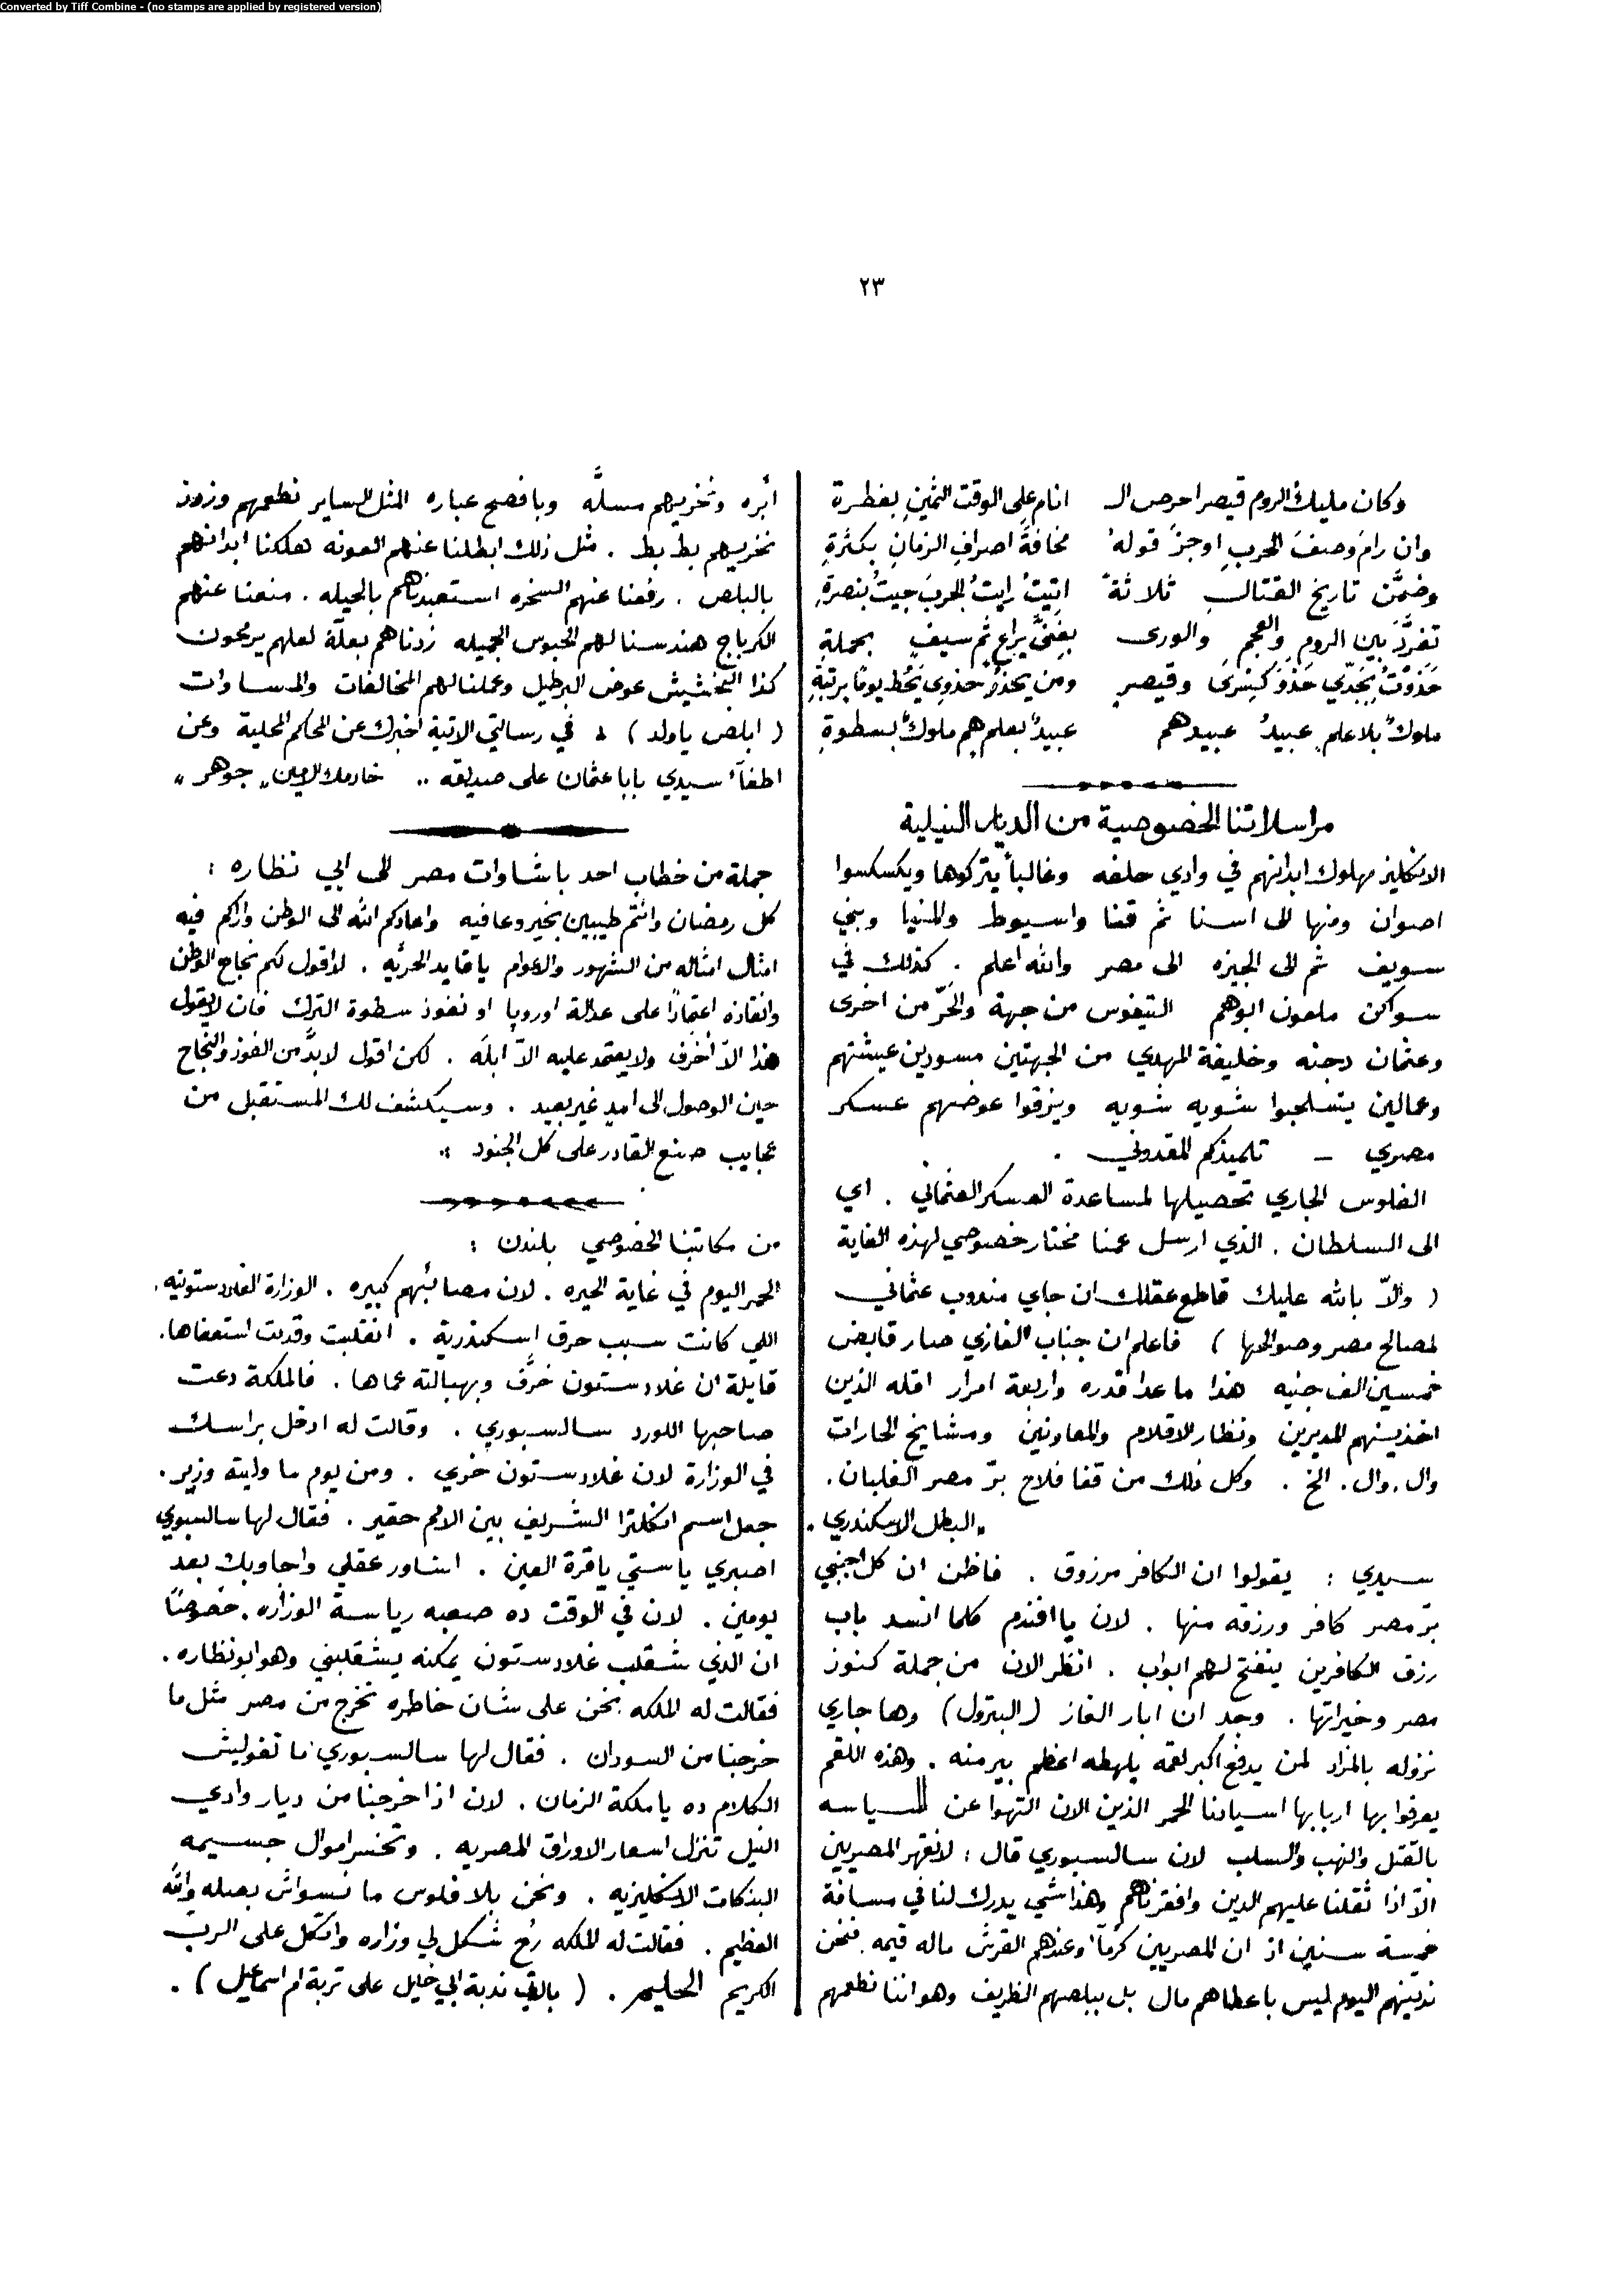 Converted by Tiff Combine - (no stamps are applied by registered version)
٢٣
وكان مليك الروم قيصر احرص الـ انام على الوقت الثمين بفطرة
وان رام وصف الحرب اوجز قوله مخافة اصراف الزمان بكثرة
وضمّن تاريخ القتال ثلاثة اتيت رايت الحرب جيت بنصرة
تفرّد بين الروم والعجم والورى بفنّي يراع ثم سيف بحملة
حذوت بجدّي حذو كسرى وقيصر ومن يحذ حذوي يحظ يوما برتبة
ملوك بلا علم عبيد عبيدهم عبيد بعلم هم ملوك بسطوة
مراسلاتنا الخصوصية من الديار النيلية
الانكليز مهلوك ابدانهم في وادي حلفه وغالباً يتركوها ويكسكسوا
اصوان ومنها الى اسنا ثم قنا واسيوط والمنيا وبني
سويف ثم الى الجيزه الى مصر والله اعلم . كذلك في
سواكن ملعون ابوهم التيفوس من جهة والحرّ من اخرى
وعثمان دجنه وخليفة المهدي من الجهتين مسودين عيشتهم
وعمالين يتسلحبوا شويه شويه ويزقوا عوضهم عسكر
مصري – تلميذكم المقدوني .
الفلوس الجاري تحصيلها لمساعدة العسكر العثماني . اي
الى السلطان . الذي ارسل عمنا مختار خصوصي لهذه الغاية
( والّا بالله عليك قاطع عقلك ان جاي مندوب عثماني
لمصالح مصر وصوالحها ) فاعلم ان جناب الغازي صار قابض
خمسين الف جنيه هذا ما عدا قدره واربعة امرار اقله الذين
اخذينهم المديرين ونظار الاقلام والمعاونين ومشايخ الحارات
وال . وال . الخ . وكل ذلك من قفا فلاح برّ مصر الغلبان .
„ البطل الاسكندري .
سيدي : يقولوا ان الكافر مرزوق . فاظن ان كل اجنبي
برّ مصر كافر ورزقه منها . لان يا افندم كلما انسد باب
رزق الكافرين ينفتح لهم ابواب . انظر الان من جملة كنوز
مصر وخيراتها . وجد ان ابار الغاز (البترول) وها جاري
نزوله بالمزاد لمن يدفع اكبر لقمه يلهطه اعظم بير منه . وهذه اللقم
يعرفوا بها اربابها اسيادنا الحمر الذين الان التهوا عن السياسه
بالقتل والنهب والسلب لان سالسبوري قال : لا نقهر المصريين
الّا اذا ثقلنا عليهم الدين وافقرناهم وهذا شي يدرك لنا في مسافة
خمسة سنين اذ ان المصريين كرماً وعندهم القرش ماله قيمه . فنحن
ندينهم اليوم ليس باعطاهم مال بل ببلصهم الظريف وهو اننا نطعمهم
أبره ونخريهم مسلّه وبافصح عباره المثل الساير نطعمهم وزوز
نخريهم بط بط . مثل ذلك ابطلنا عنهم العونه هلكنا ابدانهم
بالبلص . رفعنا عنهم السخره استعبدناهم بالحيله . منعنا عنهم
الكرباج هندسنا لهم الحبوس الجميله زدناهم بعلّة لعلهم يرمحون
كذا التبخشيش عوض البرطيل وعملنا لهم المخالفات والمساوات
( ابلص ياولد ) . في رسالتي الاتية اخبرك عن المحاكم المحلية وعن
اطفآء سيدي بابا عثمان على صديقه .. خادمك الامين „ جوهر „
جملة من خطاب احد باشاوات مصر الى ابي نظاره :
كل رمضان وانتم طيبين بخير وعافيه واعادكم الله الى الوطن واراكم فيه
امثال امثاله من الشهور والاعوام يا قايد الحريّه . لا اقول لكم نجاح الوطن
وانقاذه اعتماداً على عدالة اوروپا او نفوذ سطوة الترك فان لا يقول
هذا الّا أخرف ولا يعتمد عليه الّا ابله . لكن اقول لا بدّ من الفوز والنجاح
حين الوصول الى امد غير بعيد . وسيكشف لك المستقبل من
عجايب صنع القادر على كل الجنود .
من مكاتبنا الخصوصي بلندن :
الحمر اليوم في غاية الحيره . لان مصائبهم كبيره . الوزارة الغلادستونيه .
اللي كانت سبب حرق إسكندرية . انقلبت وقدمت استعفاها .
قايلة ان غلادستون خرّف وبهبالته عماها . فالملكة دعت
صاحبها اللورد سالسبوري . وقالت له ادخل براسك
في الوزارة لان غلادستون خري . ومن يوم ما وليته وزير .
جعل اسم انكلترا الشريف بين الامم حقير . فقال لها سالسبوري
اصبري يا ستي يا قرة العين . اشاور عقلي واجاوبك بعد
يومين . لان في الوقت ده صعبه رياسة الوزاره . خصوصًا
ان الذي شقلب غلادستون يمكنه يشقلبني وهو ابو نظاره .
فقالت له الملكه نحن على شان خاطره نخرج من مصر مثل ما
خرجنا من السودان . فقال لها سالسبوري ما تقوليش
الكلام ده يا ملكة الزمان . لان اذا خرجنا من ديار وادي
النيل تنزل اسعار الاوراق المصريه . وتخسر اموال جسيمه
البنكات الانكليزيه . ونحن بلا فلوس ما نسواش بصله والله
العظيم . فقالت له الملكه رُح شكل لي وزاره واتكل على الرب
الكريم الحليم . ( باقي ندبة ابي خليل على تربة ام اسماعيل ) .